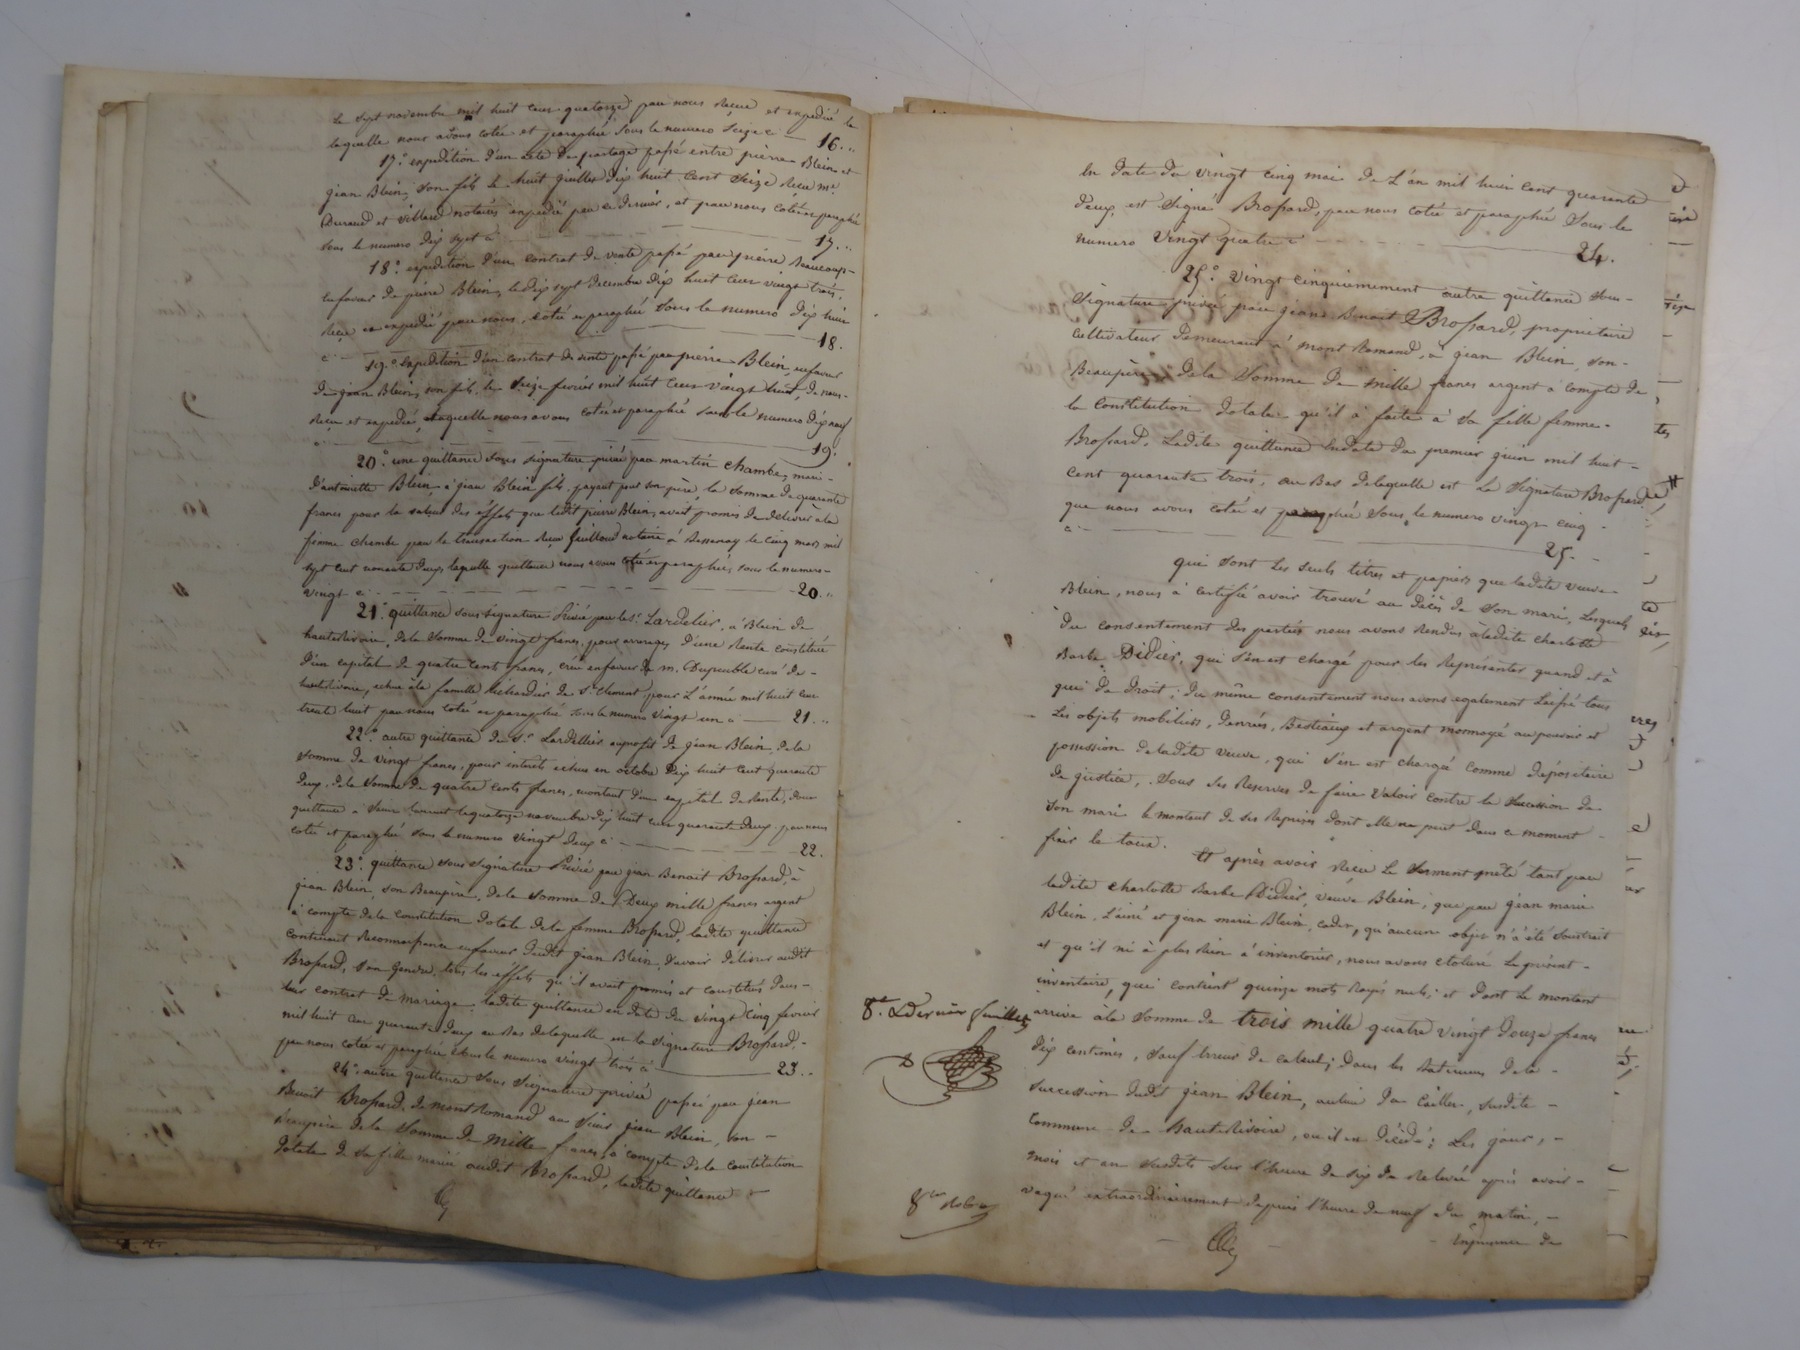 le sept novembre mil huit cent quatorze par nous Reçue et expédiée la
laquelle nous avons cotée et paraphée sous le numero seize ci — 16.
17.° expédition d'un acte de partage passé entre pierre Blein et
jean Blein, son fils le huit juillet dix huit cent seize Reçu me.
Durand et Villard notaires expédié par ce dernier, et par nous cotée et paraphée
sous le numero dix sept ci — 17.
18.° expédition d'un contrat de vente passé par pierre Beaucoup-
en faveur de pierre Blein, le dix sept decembre dix huit cent vingt trois,
Reçu et expédié par nous, cotée et paraphée sous le numero dix huit
ci — 18.
19.° expédition d'un contrat de vente passé par pierre Blein, en faveur
de jean Blein, son fils, le seize fevrier mil huit cent vingt huit, de nous-
Reçu et expédié, laquelle nous avons cotée et paraphée sous le numero dix neuf
ci — 19.
20.° une quittance sous signature privée par martin Chambe, mari-
d'antoinette Blein, à jean Blein fils, payant pour son père, la somme de quarante
francs pour la valeur des effets que ledit pierre Blein, avait promis de délivrer à la
femme Chambe par la transaction Reçu Guilloud notaire à Bessenay le cinq mars mil
sept cent nonante deux, laquelle quittance nous avons cotée et paraphée, sous le numero-
vingt ci — 20.
21.° quittance sous signature Privée par le Sr. Lardelier, à Blein de
hauterivoire, de la somme de vingt francs, pour arrerages d'une Rente constituée
d'un capital de quatre cent francs, créé en faveur de m. Dupeuble curé de-
hauterivoire, echue à la famille de St. Clement pour l'année mil huit cent
trente huit par nous cotée et paraphée sous le numero vingt un ci — 21.
22.° autre quittance du Sr. Lardellier au profit de jean Blein, de la
somme de vingt francs, pour interêts echus en octobre dix huit cent quarante
deux, de la somme de quatre cents francs, montant d'un capital de Rente, dont
quittance le quatorze novembre dix huit cent quarante deux, par nous
cotée et paraphée sous le numero vingt deux ci — 22.
23.° quittance sous signature Privée par jean Benoit Brossard, à
jean Blein, son Beaupère, de la somme de Deux mille francs argent
à compte de la constitution dotale de la femme Brossard, ladite quittance
contenant Reconnaissance en faveur dudit jean Blein, d'avoir délivré audit
Brossard, son gendre, tous les effets qu'il avait promis et constitués dans-
leur contrat de mariage, ladite quittance en date du vingt cinq fevrier
mil huit cent quarante deux au Bas de laquelle est la signature Brossard,-
par nous cotée et paraphée sous le numero vingt trois ci — 23.
24.° autre quittance sous signature privée passée par jean
Benoit Brossard, de montRomand au sieur jean Blein, son -
Beaupère de la somme de mille francs à compte de la constitution
dotale de sa fille mariée audit Brossard, ladite quittance -
En date du vingt cinq mai de l'an mil huit cent quarante
deux, est signé Brossard, par nous cotée et paraphée sous le
numero vingt quatre ci — 24.
25.° vingt cinquiemement autre quittance sous-
signature privée par jean Benoit Brossard, propriétaire
cultivateur demeurant à mont Romand, à jean Blein, son-
Beaupère de la somme de mille francs argent à compte de
la Constitution dotale qu'il à faite à sa fille femme-
Brossard. Ladite quittance en date du premier juin mil huit-
cent quarante trois, au Bas de laquelle est la signature Brossard
que nous avons cotée et paraphée sous le numero vingt cinq -
ci — 25.
qui sont les seuls titres et papiers que ladite veuve-
Blein, nous à certifié avoir trouvé au décès de son mari, lesquels
du consentement des parties nous avons Rendus à ladite charlotte
Barbe Didier, qui s'en est chargé pour les Représenter quand et à
qui de droit; du même consentement nous avons egalement laissé tous
les objets mobiliers, denrées, Bestiaux et argent monnoyé au pouvoir et
possession de ladite veuve, qui s'en est chargée comme depositaire
de justice, sous ses Reserves de faire valoir contre la succession de
son mari le montant de ses Reprises dont elle ne peut dans ce moment -
fixer le taux. Et après avoir Recu le serment prêté tant par
ladite charlotte Barbe Didier, veuve Blein, que par jean marie
Blein, L'ainé et jean marie Blein, cadet, qu'aucun objet n'à été soustrait
et qu'il ni à plus Rien à inventorier, nous avons cloturé le présent-
inventaire, qui contient quinze mots Rayés nuls; et dont le montant
8e. & Dernier feuillet
arrive à la somme de trois mille quatre vingt douze francs
dix centimes, sauf Erreur de calcul; dans les Batimens de la -
succession dudit jean Blein, au lieu du Caillet, susdite -
commune de hauteRivoire, ou il est décédé; Les jour, -
mois et an susdits sur l'heure de six de Relevée après avoir-
8e Role
vaqué extraordinairement depuis l'heure de neuf du matin, -
En présence de